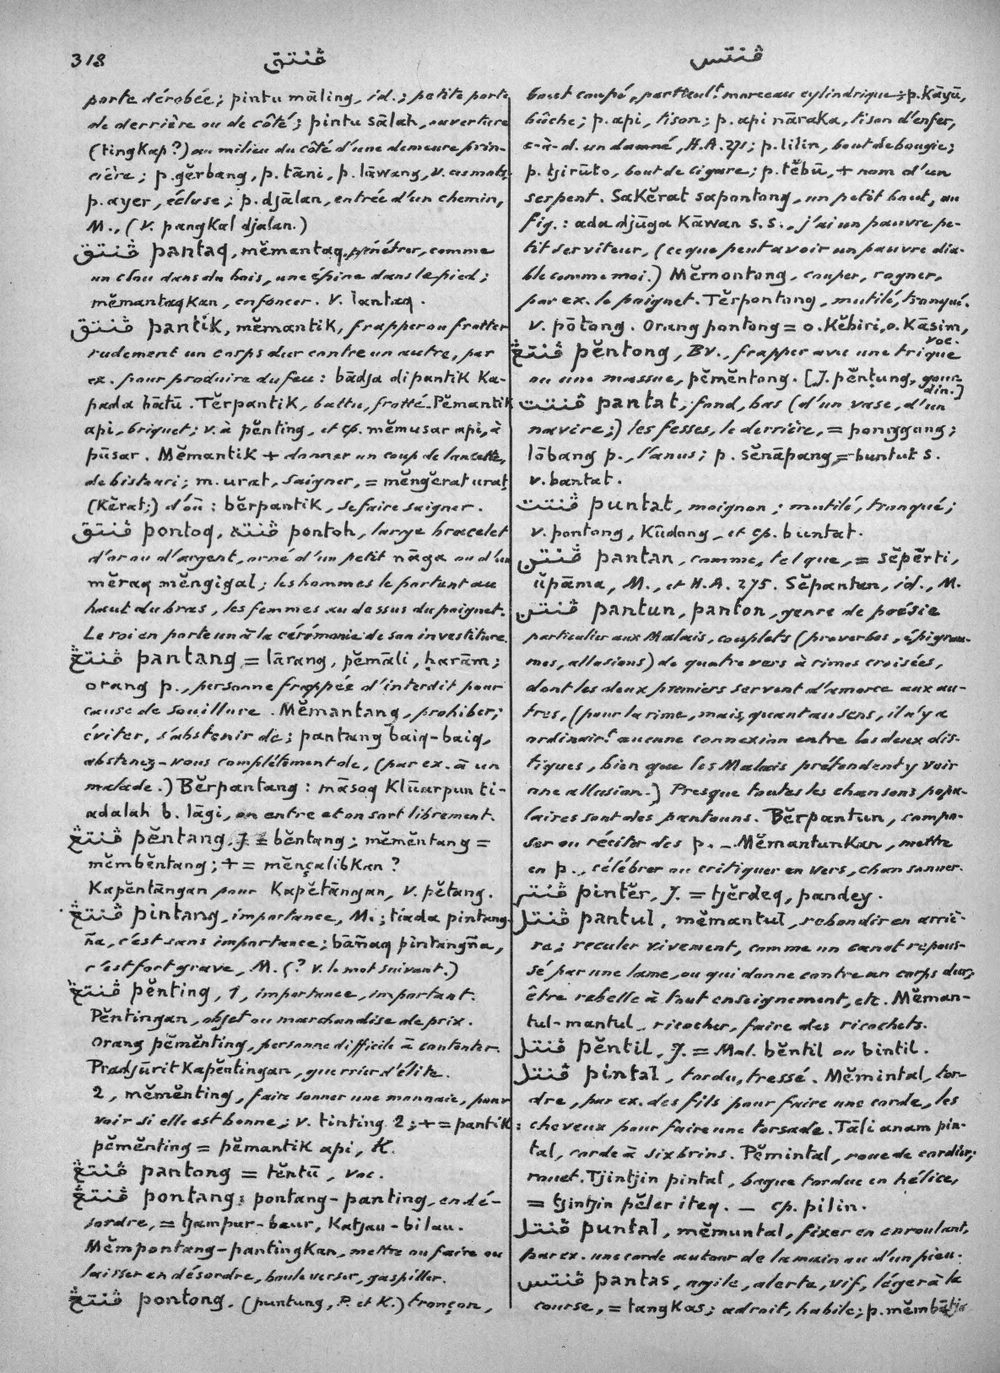 318
ڤنتق
ڤنتس
porte dérobée; pintu māling, id.; petite porte
de derrière ou de côté; pintu sālah, ouverture
(tingkap?) au milieu du côté d'une demeure prin-
cière; p. gĕrbang, p. tāni, p. lāwang, v. ces mots;
p. ayer, écluse; p. djālan, entrée d'un chemin,
M., (v. pangkal djalan.)
ڤنتق pantaq, mĕmantaq, pénétrer, comme
un clou dans du bois, une épine dans le pied;
mĕmantaqkan, enfoncer. V. lantaq.
ڤنتق pantik, mĕmantik, frapper ou frotter
rudement un corps dur contre un autre, par
ex. pour produire du feu: bādja dipantik ka-
pada bātū. Tĕrpantik, battu, frotté. Pĕmantik
api, briquet; v. à pĕnting, et cp. mĕmusar api, à
pūsar. Mĕmantik + donner un coup de lancette,
de bistouri; m. urat, saigner, = mĕngĕrat urat
(kĕrat;) d'où: bĕrpantik, se faire saigner.
ڤنتق pontoq, ڤنته pontoh, large bracelet
d'or ou d'argent, orné d'un petit nāga ou d'un
mĕraq mĕngigal; les hommes le portent au
haut du bras, les femmes au dessus du poignet.
Le roi en porte un à la cérémonie de son investiture.
ڤنتڠ pantang = lārang, pĕmāli, ḥarām;
orang p., personne frappée d'interdit pour
cause de souillure. Mĕmantang, prohiber;
éviter, s'abstenir de; pantang baiq-baiq,
abstenez-vous complétement de, (par ex. à un
malade.) Bĕrpantang: māsoq klūarpun ti-
adalah b. lāgi, on entre et on sort librement.
ڤنتڠ pĕntang, J. = bĕntang; mĕmĕntang =
mĕmbĕntang; + = mĕnçalibkan?
Kapĕntāngan pour Kapĕtāngan, v. pĕtang.
ڤنتڠ pintang, importance, M.; tiada pintang-
ña, c'est sans importance; bāñaq pintangña,
c'est fort grave, M. (? v. le mot suivant.)
ڤنتڠ pĕnting, 1, importance, important.
Pĕntingan, objet ou marchandise de prix.
Orang pĕmĕnting, personne difficile à contenter.
Pradjūrit kapĕntingan, guerrier d'élite.
2, mĕmĕnting, faire sonner une monnaie, pour
voir si elle est bonne; v. tinting 2; + = pantik:
pĕmĕnting = pĕmantik api, K.
ڤنتڠ pantong = tĕntū, voc.
ڤنتڠ pontang: pontang-panting, en dé-
sordre, = tjampur-baur, katjau-bilau.
Mĕmpontang-pantingkan, mettre ou faire ou
laisser en désordre, bouleverser, gaspiller.
ڤنتڠ pontong, (puntung, P. et K.) tronçon,
bout coupé, particult. morceau cylindrique; p. kāyū,
bûche; p. api, tison; p. api nāraka, tison d'enfer,
c-à-d. un damné, H.A. 271; p. lilin, bout de bougie;
p. tjirūto, bout de cigare; p. tĕbū, + nom d'un
serpent. Sakĕrat sapontong, un petit bout, au
fig.: ada djūga kāwan s. s., j'ai un pauvre pe-
tit serviteur, (ce que peut avoir un pauvre dia-
ble comme moi.) Mĕmontong, couper, rogner,
par ex. le poignet. Tĕrpontong, mutilé, tronqué.
v. pōtong. Orang pontong = o. kĕbiri, o. kāsim,
voc.
ڤنتڠ pĕntong, Bv., frapper avec une trique
ou une massue, pĕmĕntong. [J. pĕntung, gour-
din.]
ڤنتت pantat, fond, bas (d'un vase, d'un
navire;) les fesses, le derrière, = ponggong;
lōbang p., l'anus; p. sĕnāpang, = buntut s.
v. bantat.
ڤنتت puntat, moignon; mutilé, tronqué;
v. pontong, kūdong, et cp. buntat.
ڤنتن pantan, comme, tel que, = sĕpĕrti,
ūpāma, M., et H.A. 275. Sĕpantan, id., M.
ڤنتن pantun, panton, genre de poésie
particulier aux Malais, couplets (proverbes, épigram-
mes, allusions) de quatre vers à rimes croisées,
dont les deux premiers servent d'amorce aux au-
tres, (pour la rime, mais, quant au sens, il n'y a
ordinairt. aucune connexion entre les deux dis-
tiques, bien que les Malais prétendent y voir
une allusion.) Presque toutes les chansons popu-
laires sont des pantouns. Bĕrpantun, compo-
ser ou réciter des p. – Mĕmantunkan, mettre
en p., célébrer ou critiquer en vers, chansonner.
ڤنتر pintĕr, J. = tjĕrdeq, pandey.
ڤنتل pantul, mĕmantul, rebondir en arriè-
re; reculer vivement, comme un canot repous-
sé par une lame, ou qui donne contre un corps dur;
être rebelle à tout enseignement, etc. Mĕman-
tul-mantul, ricocher, faire des ricochets.
ڤنتل pĕntil, J. = Mal. bĕntil ou bintil.
ڤنتل pintal, tordu, tressé. Mĕmintal, tor-
dre, par ex. des fils pour faire une corde, les
cheveux pour faire une torsade. Tāli anam pin-
tal, corde à six brins. Pĕmintal, roue de cordier,
rouet. Tjintjin pintal, bague tordue en hélice,
= tjintjin pĕler iteq. – cp. pilin.
ڤنتل puntal, mĕmuntal, fixer en enroulant,
par ex. une corde autour de la main ou d'un pieu.
ڤنتس pantas, agile, alerte, vif, léger à la
course, = tangkas; adroit, habile; p. mĕmbātja